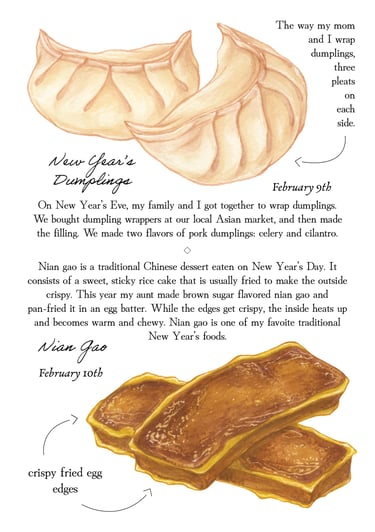 The way my mom
and I wrap
dumplings,
three
pleats
on
each
side.
New Year's
Dumplings
February 9th
On New Year's Eve, my family and I got together to wrap dumplings.
We bought dumpling wrappers at our local Asian market, and then made
the filling. We made two flavors of pork dumplings: celery and cilantro.
Nian gao is a traditional Chinese dessert eaten on New Year's Day. It
consists of a sweet, sticky rice cake that is usually fried to make the outside
crispy. This year my aunt made brown sugar flavored nian gao and
pan-fried it in an egg batter. While the edges get crispy, the inside heats up
and becomes warm and chewy. Nian gao is one of my favoite traditional
New Year's foods.
Nian Gao
February 10th
crispy fried egg
edges